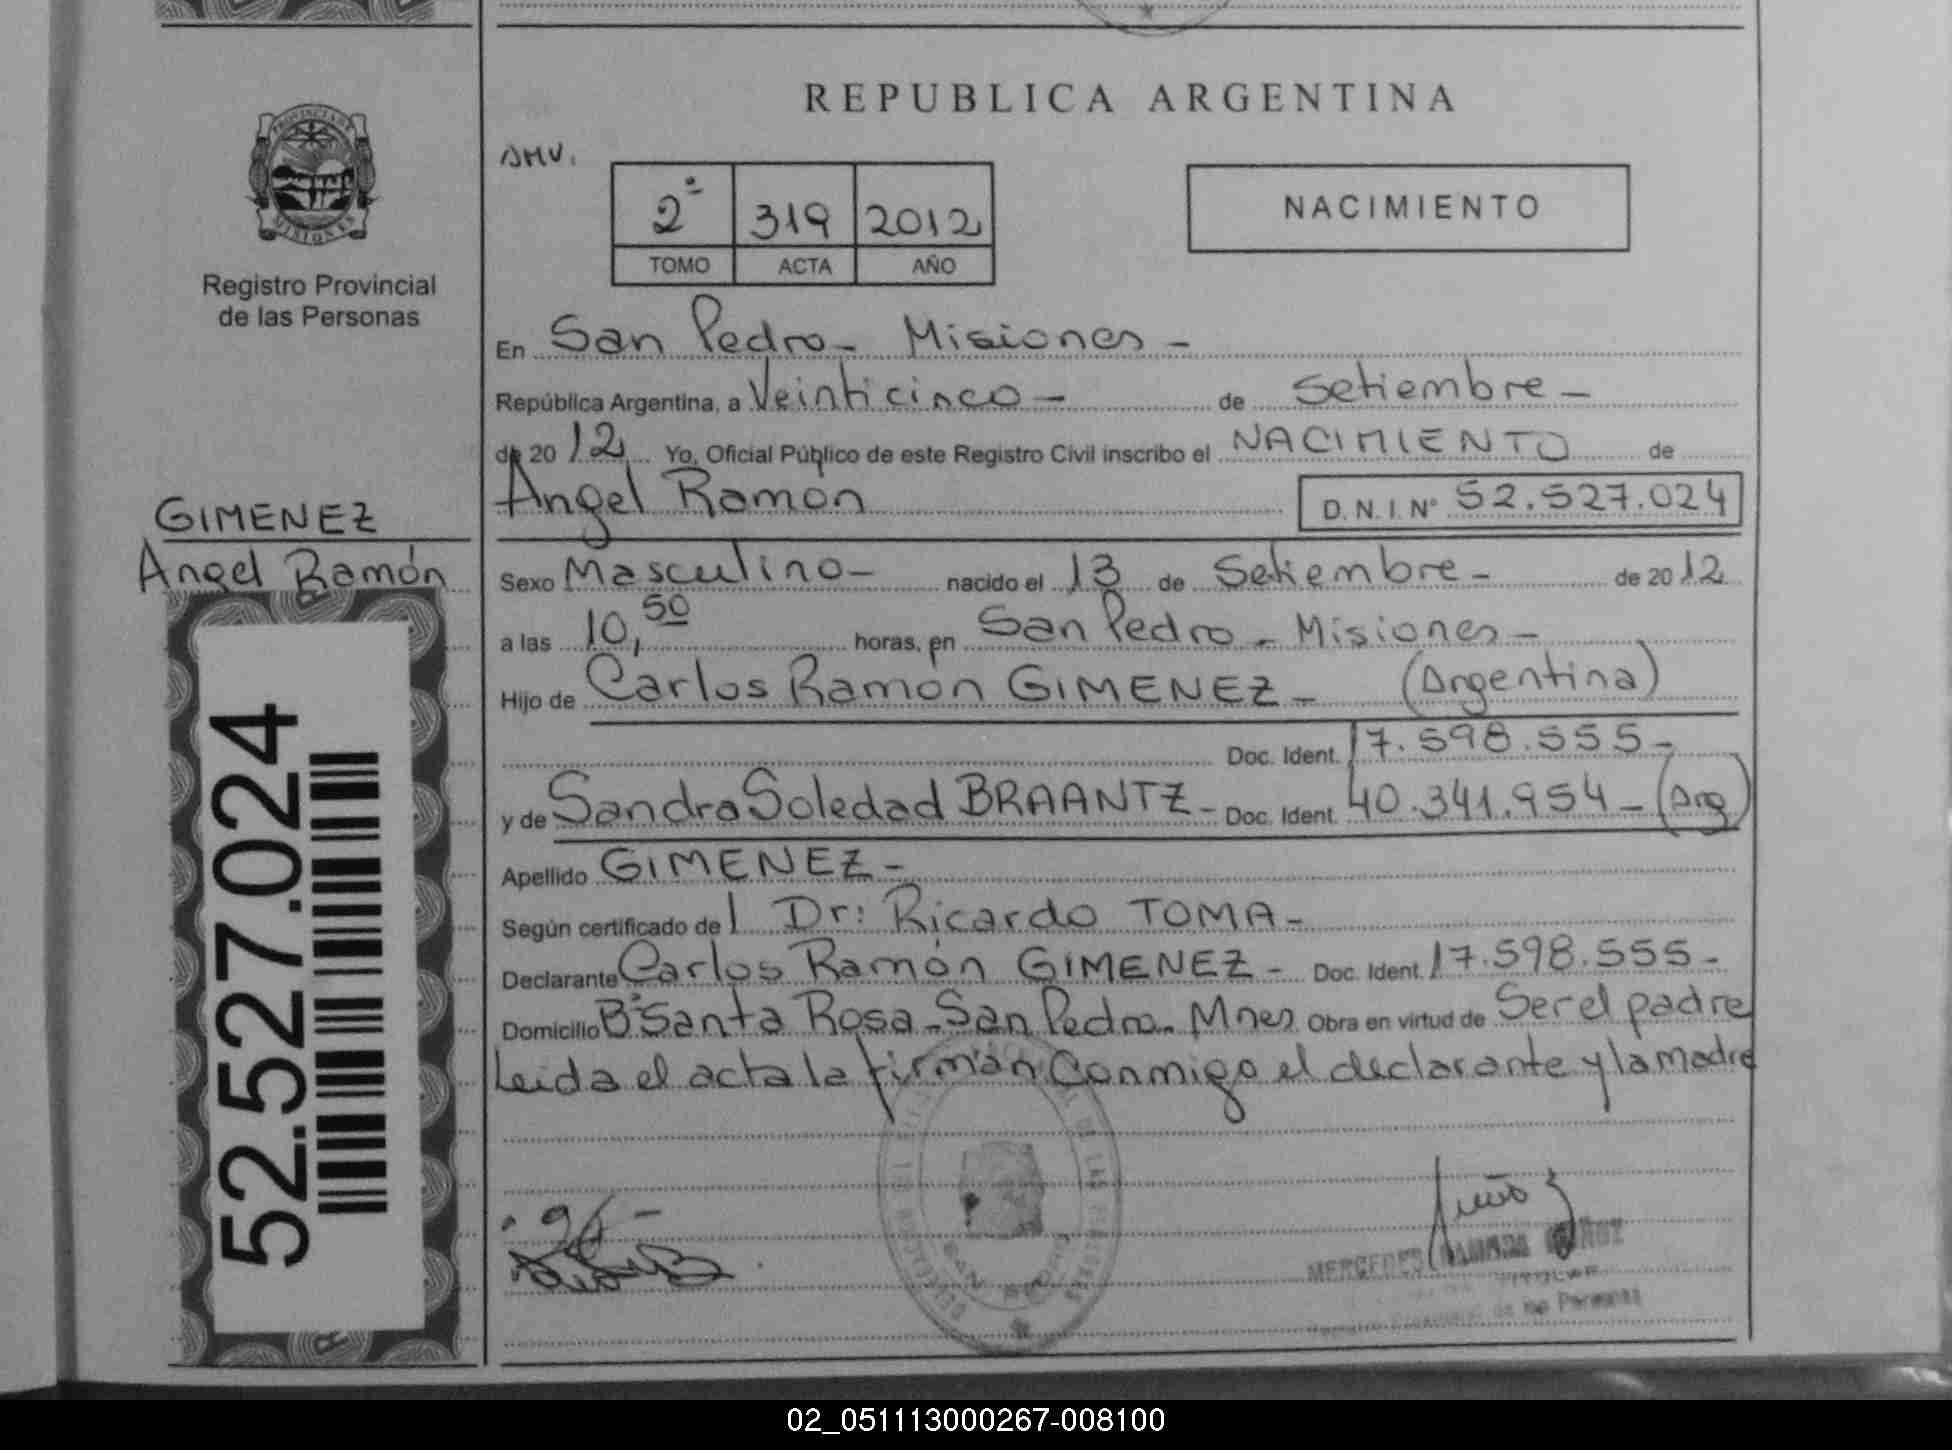 PROVINCIA DE
MISIONES
Registro Provincial
de las Personas
GIMENEZ
Angel Ramón
52.527.024
REPUBLICA ARGENTINA
2º 319 2012
TOMO ACTA AÑO
NACIMIENTO
En San Pedro - Misiones -
República Argentina, a Veinticinco - de Setiembre -
de 2012 Yo, Oficial Público de este Registro Civil inscribo el NACIMIENTO de
Angel Ramón D.N.I. Nº 52.527.024
Sexo Masculino - nacido el 13 de Setiembre - de 2012
a las 10,50 horas, en San Pedro - Misiones -
Hijo de Carlos Ramón GIMENEZ - (Argentina)
Doc. Ident. 17.598.555 -
y de Sandra Soledad BRAANTZ - Doc. Ident. 40.341.954 - (Arg)
Apellido GIMENEZ -
Según certificado del Dr: Ricardo TOMA -
Declarante Carlos Ramón GIMENEZ - Doc. Ident. 17.598.555 -
Domicilio Bº Santa Rosa - San Pedro - Mnes Obra en virtud de Ser el padre
Leida el acta la firman Conmigo el declarante y la madre
MERCEDES
de las Personas
02_051113000267-008100